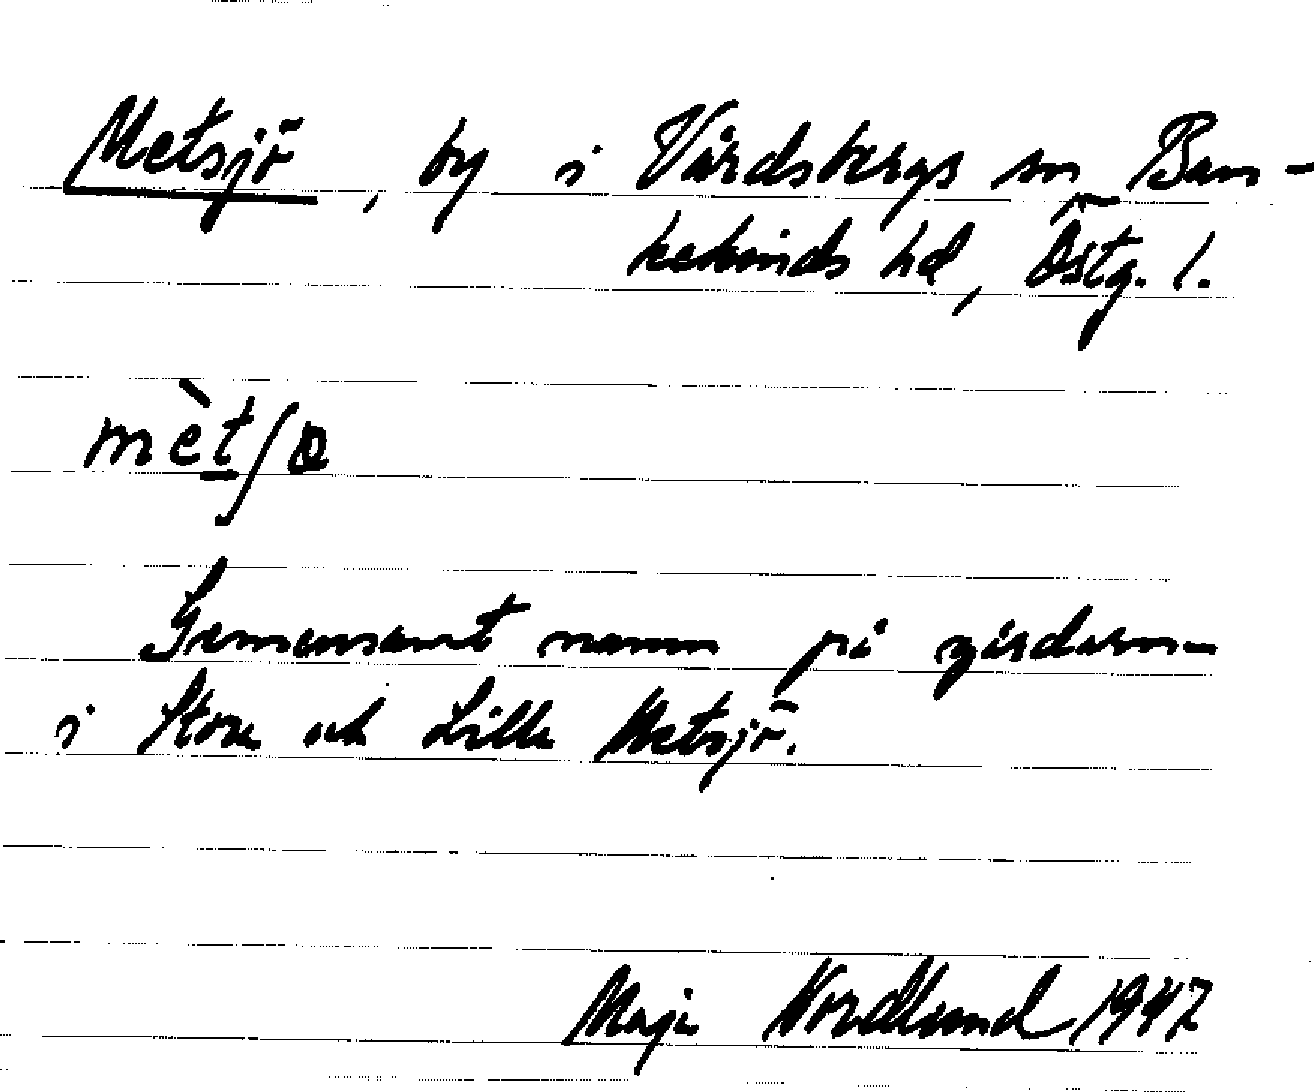 Metsjö, by i Vårdsbergs sn Ban-
kekinds hd, Östg. l.
mètʃɷ
Gemensamt namn på gårdarna
i Stora och Lilla Metsjö.
Maja Nordlund 1947